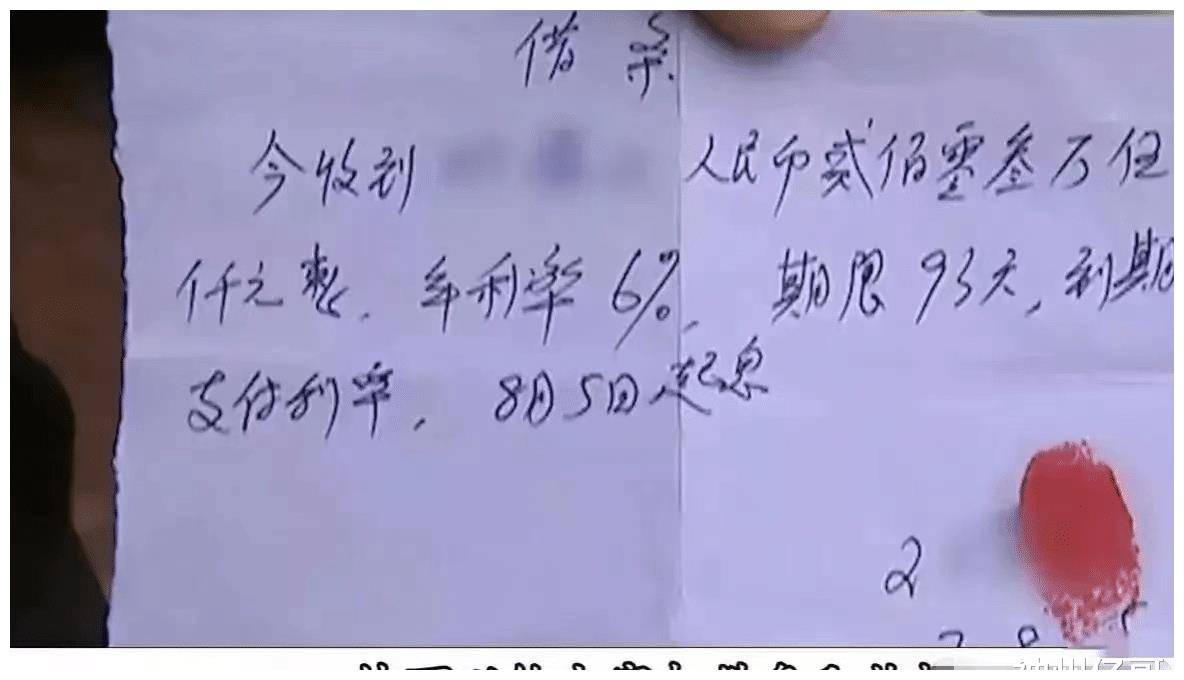 借条
今收到 人民币贰佰零叁万伍
仟元整. 年利率6%, 期限93天, 到期
支付利率, 8月5日起息
2